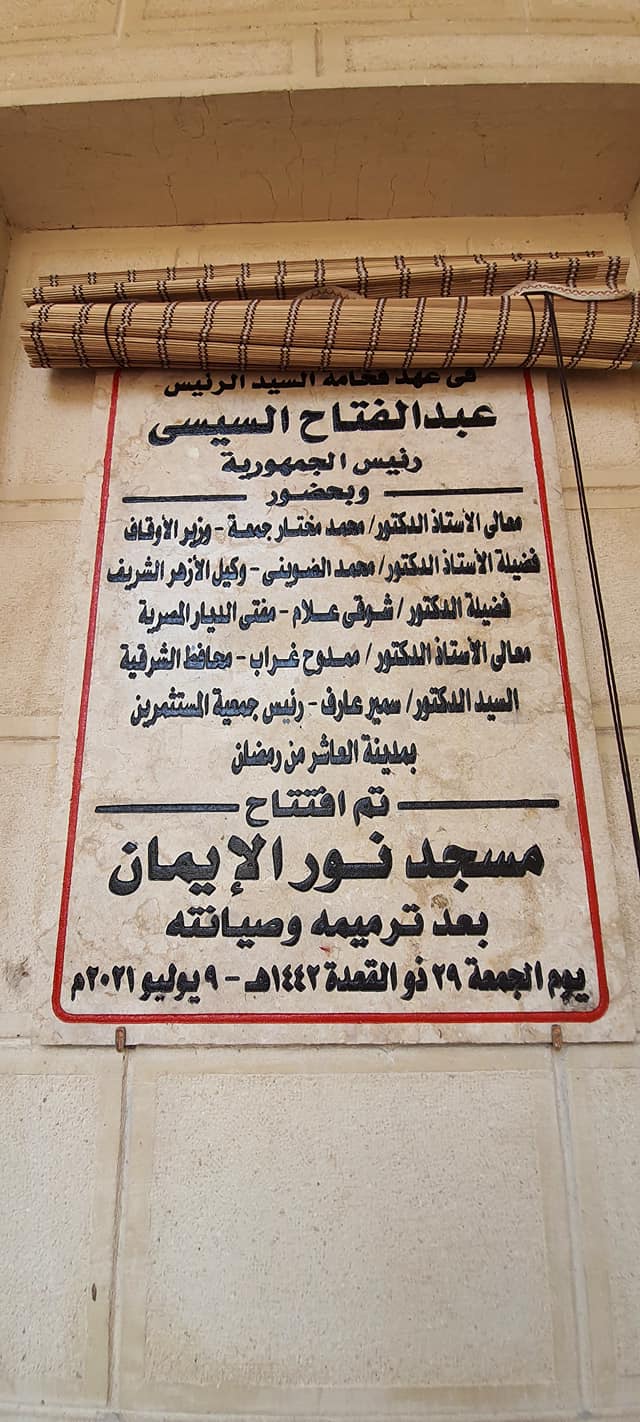 فى عهد فخامة السيد الرئيس
عبدالفتاح السيسى
رئيس الجمهورية
وبحضور
معالى الأستاذ الدكتور/ محمد مختار جمعة - وزير الأوقاف
فضيلة الأستاذ الدكتور/ محمد الضوينى - وكيل الأزهر الشريف
فضيلة الدكتور / شوقى علام - مفتى الديار المصرية
معالى الأستاذ الدكتور / ممدوح غراب - محافظ الشرقية
السيد الدكتور/ سمير عارف - رئيس جمعية المستثمرين
بمدينة العاشر من رمضان
تم افتتاح
مسجد نور الإيمان
بعد ترميمه وصيانته
يوم الجمعة ٢٩ ذو القعدة ١٤٤٢هـ - ٩ يوليو ٢٠٢١م